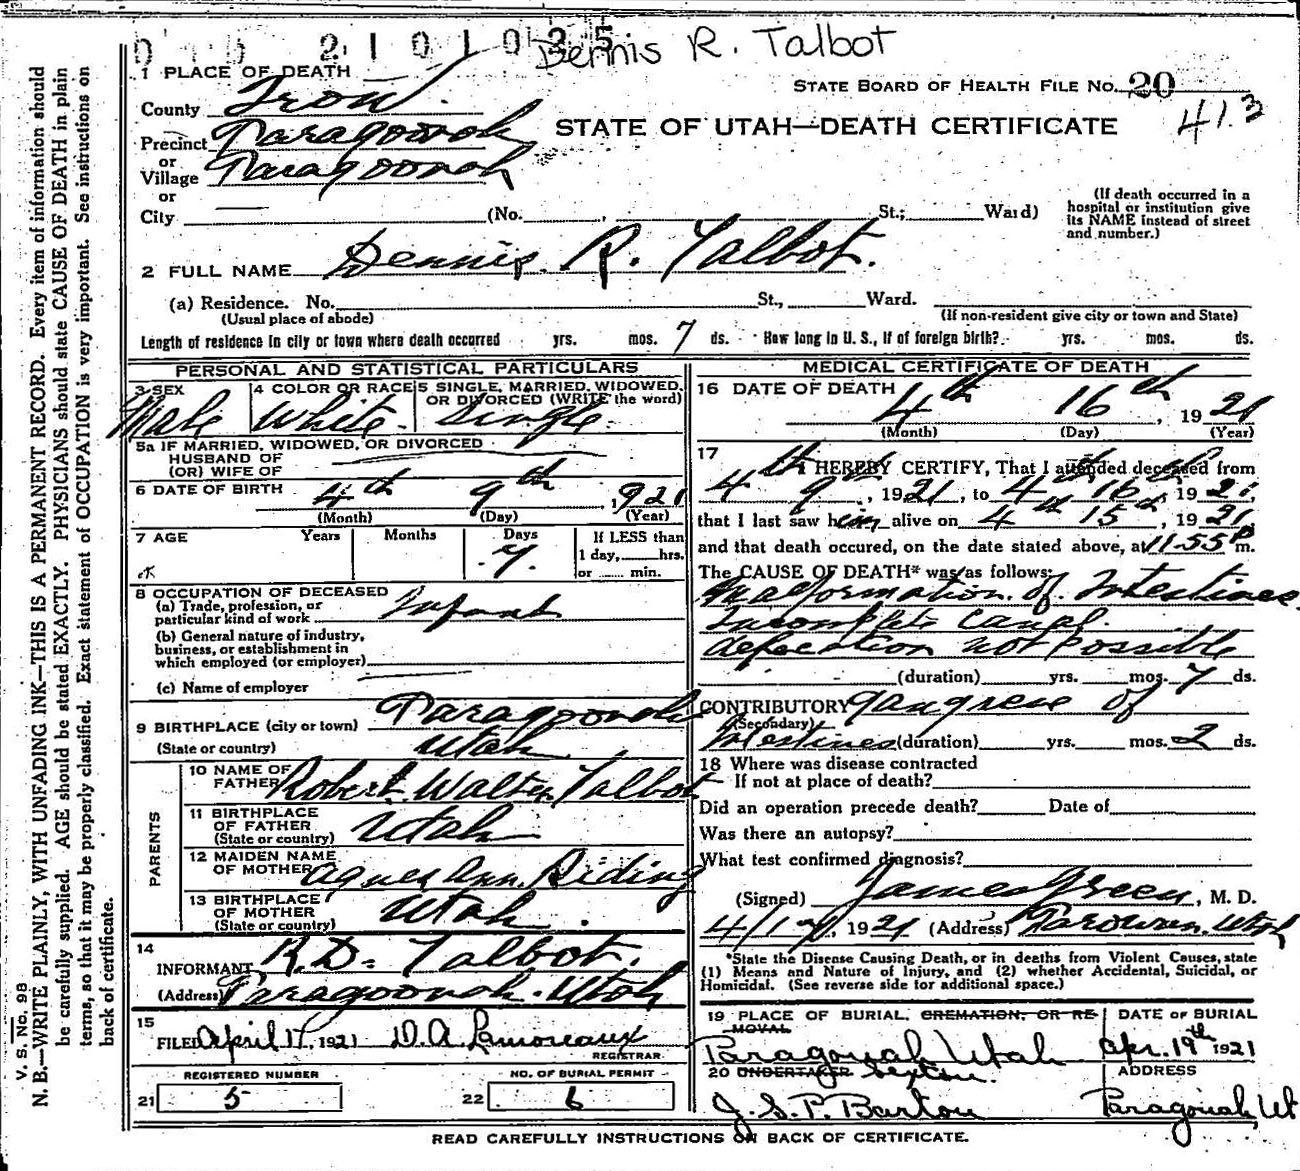 2101035
Dennis R. Talbot
STATE BOARD OF HEALTH FILE No. 20
41.3
STATE OF UTAH—DEATH CERTIFICATE
1 PLACE OF DEATH
County Iron
Precinct Paragoonah
or
Village Paragoonah
or
City (No. , St.; Ward)
(If death occurred in a
hospital or institution give
its NAME instead of street
and number.)
2 FULL NAME Dennis R. Talbot.
(a) Residence. No. St., Ward.
(Usual place of abode) (If non-resident give city or town and State)
Length of residence in city or town where death occurred yrs. mos. 7 ds. How long in U. S., if of foreign birth? yrs. mos. ds.
PERSONAL AND STATISTICAL PARTICULARS
3 SEX
Male
4 COLOR OR RACE
White
5 SINGLE, MARRIED, WIDOWED,
OR DIVORCED (WRITE the word)
Single
5a IF MARRIED, WIDOWED, OR DIVORCED
HUSBAND OF
(OR) WIFE OF
6 DATE OF BIRTH 4th 9th, 1921
(Month) (Day) (Year)
7 AGE Years Months Days
7
If LESS than
1 day, hrs.
or min.
8 OCCUPATION OF DECEASED
(a) Trade, profession, or
particular kind of work Infant
(b) General nature of industry,
business, or establishment in
which employed (or employer)
(c) Name of employer
9 BIRTHPLACE (city or town) Paragoonah
(State or country) Utah
PARENTS
10 NAME OF
FATHER Robert Walter Talbot
11 BIRTHPLACE
OF FATHER Utah
(State or country)
12 MAIDEN NAME
OF MOTHER Agnes Ann Riding
13 BIRTHPLACE
OF MOTHER Utah
(State or country)
14
INFORMANT R.D. Talbot.
(Address) Paragoonah. Utah
15
FILED April 17, 1921 D. A. Lamoreaux
REGISTRAR
REGISTERED NUMBER
21 5
NO. OF BURIAL PERMIT
22 6
MEDICAL CERTIFICATE OF DEATH
16 DATE OF DEATH
4th 16th, 1921
(Month) (Day) (Year)
17
I HEREBY CERTIFY, That I attended deceased from
4th 9th, 1921, to 4th 16th, 1921,
that I last saw him alive on 4th 15th, 1921
and that death occured, on the date stated above, at 11.55 P m.
The CAUSE OF DEATH* was as follows:
Malformation of Intestines
Incomplete Canal.
defecation not possible
(duration) yrs. mos. 7 ds.
CONTRIBUTORY gangrene of
(Secondary)
Intestines (duration) yrs. mos. 2 ds.
18 Where was disease contracted
If not at place of death?
Did an operation precede death? Date of
Was there an autopsy?
What test confirmed diagnosis?
(Signed) James Green, M. D.
1921 (Address) Parowan. Utah
*State the Disease Causing Death, or in deaths from Violent Causes, state
(1) Means and Nature of Injury, and (2) whether Accidental, Suicidal, or
Homicidal. (See reverse side for additional space.)
19 PLACE OF BURIAL, CREMATION, OR RE-
MOVAL
Paragonah Utah
DATE OF BURIAL
Apr. 19th 1921
20 UNDERTAKER Sexton.
J. S. P. Barton
ADDRESS
Paragonah, Ut
READ CAREFULLY INSTRUCTIONS ON BACK OF CERTIFICATE.
V. S. No. 98
N. B.—WRITE PLAINLY, WITH UNFADING INK—THIS IS A PERMANENT RECORD. Every item of information should
be carefully supplied. AGE should be stated EXACTLY. PHYSICIANS should state CAUSE OF DEATH in plain
terms, so that it may be properly classified. Exact statement of OCCUPATION is very important. See instructions on
back of certificate.